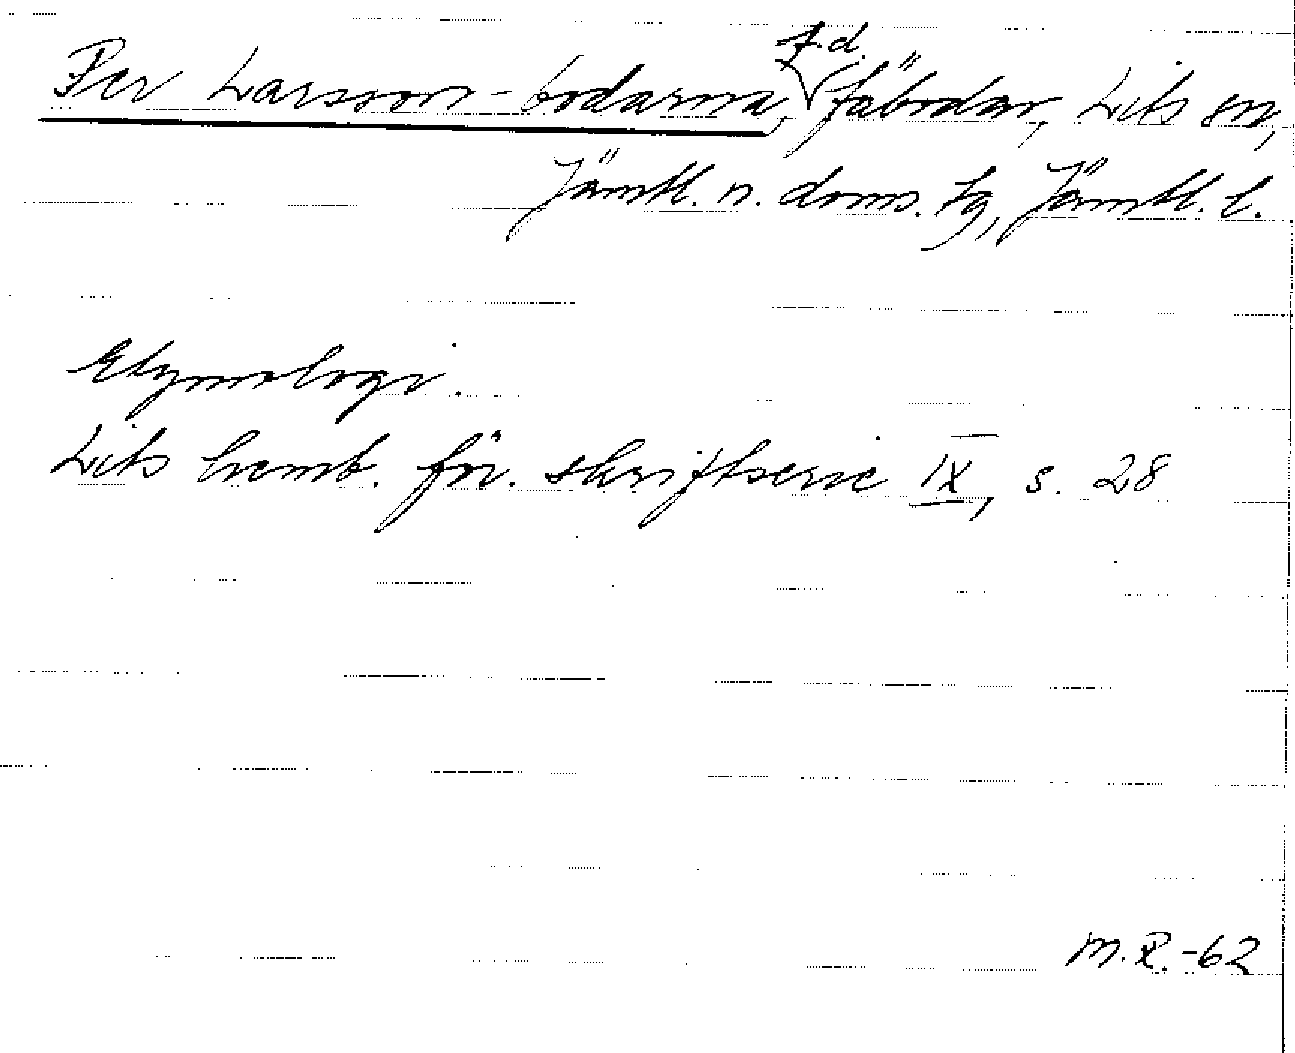 Per Larsson-bodarna, f.d. fäbodar, Lits sn,
Jämtl. n. doms. tg, Jämtl. l.
Etymologi.
Lits hemb. för. skriftserie IX, s. 28
M.R.-62